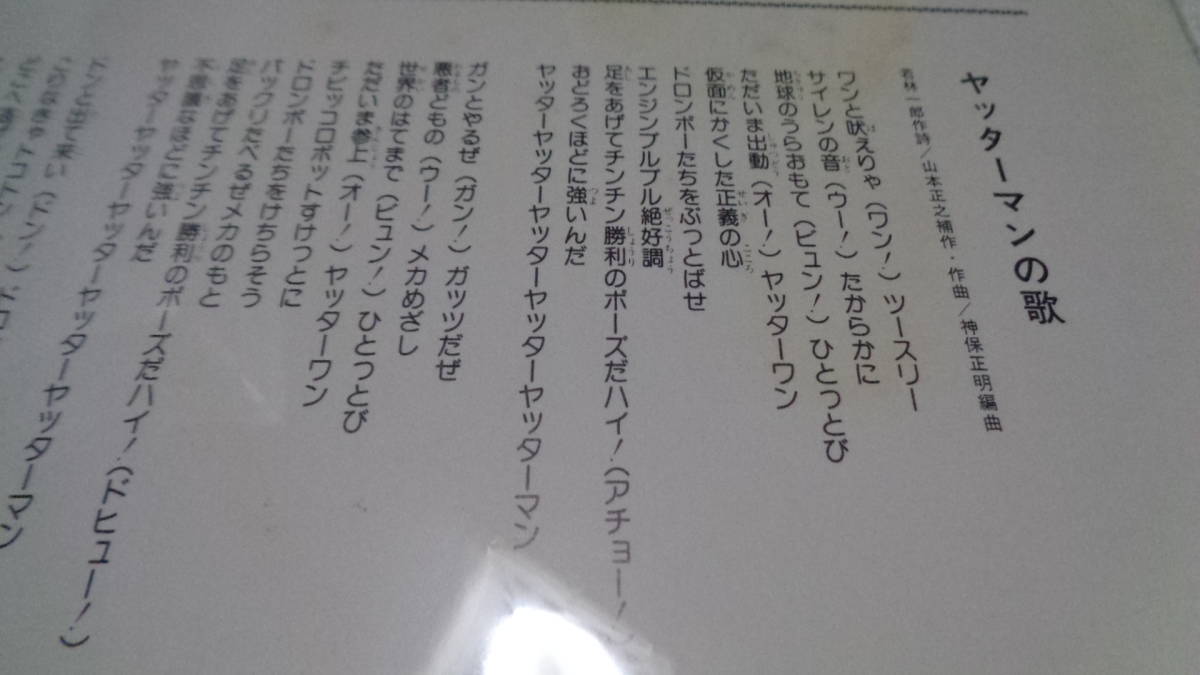 ヤッターマンの歌
若林一郎作詩/山本正之補作・作曲/神保正明編曲
ワンと吠えりゃ(ワン!)ツースリー
サイレンの音(ウー!)たからかに
地球のうらおもて(ビュン!)ひとっとび
ただいま出動(オー!)ヤッターワン
仮面にかくした正義の心
ドロンボーたちをぶっとばせ
エンジンブルブル絶好調
足をあげてチンチン勝利のポーズだハイ!(アチョー!)
おどろくほどに強いんだ
ヤッターヤッターヤッターヤッターヤッターマン
ガンとやるぜ(ガン!)ガッツだぜ
悪者どもの(ウー!)メカめざし
世界のはてまで(ビュン!)ひとっとび
ただいま参上(オー!)ヤッターワン
チビッコロボットすけっとに
ドロンボーたちをけちらそう
パックリたべるぜメカのもと
足をあげてチンチン勝利のポーズだハイ!(ドヒュー!)
不思議なほどに強いんだ
ヤッターヤッターヤッターヤッターヤッターマン
ドンと出て来い(ドン!)